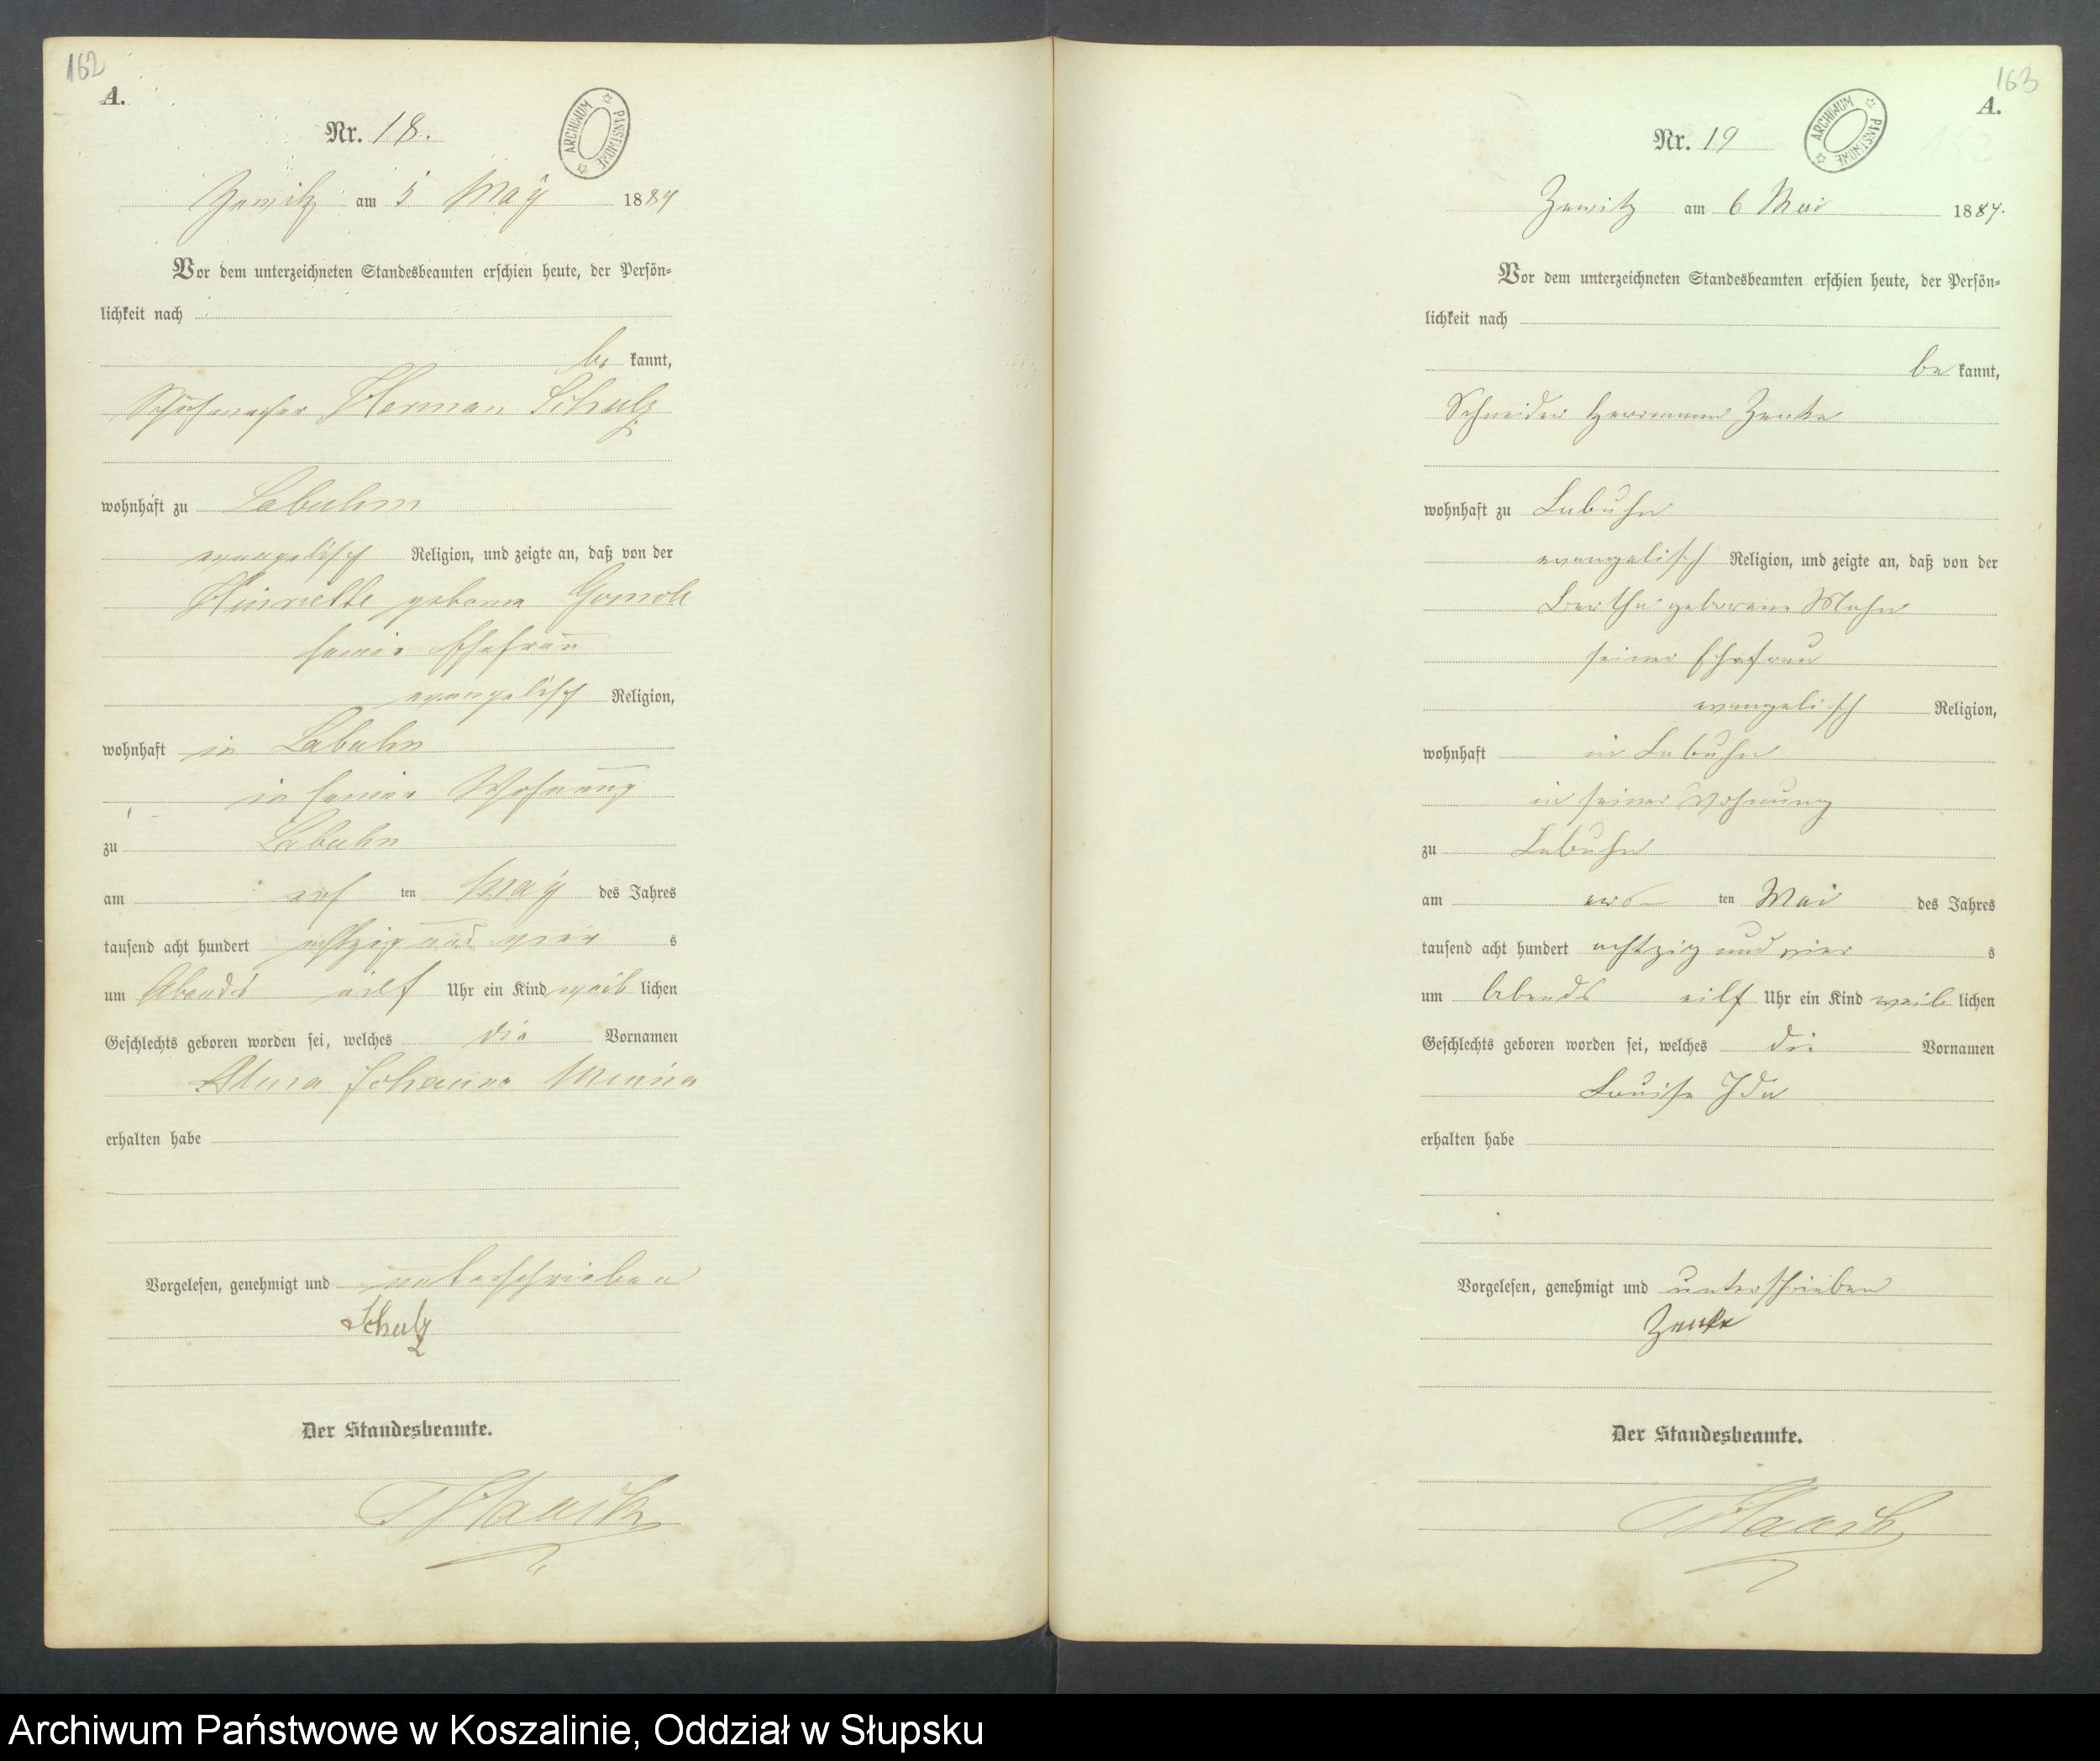 162
A.
Nr. 18.
ARCHIWUM PAŃSTWOWE
Zewitz am 5 May 1884
Vor dem unterzeichneten Standesbeamten erschien heute, der Persön=
lichkeit nach
be kannt,
Schuhmacher Herman Schulz
wohnhaft zu Labuhn
evangelisch Religion, und zeigte an, daß von der
Hinriette geborne
seiner Ehefrau
evangelisch Religion,
wohnhaft in Labuhn
in seiner Wohnung
zu Labuhn
am ten May des Jahres
tausend acht hundert achtzig und vier s
um Abends eilf Uhr ein Kind weib lichen
Geschlechts geboren worden sei, welches die Vornamen
Johanne Minna
erhalten habe
Vorgelesen, genehmigt und unterschrieben
Schulz
Der Standesbeamte.
163
A.
Nr. 19
ARCHIWUM PAŃSTWOWE
Zewitz am 6 Mai 1884.
Vor dem unterzeichneten Standesbeamten erschien heute, der Persön=
lichkeit nach
be kannt,
Schneider Herrmann Zenke
wohnhaft zu Labuhn
evangelisch Religion, und zeigte an, daß von der
Bertha geborene
seiner Ehefrau
evangelisch Religion,
wohnhaft in Labuhn
in seiner Wohnung
zu Labuhn
am ten Mai des Jahres
tausend acht hundert achtzig und vier s
um Abends eilf Uhr ein Kind weib lichen
Geschlechts geboren worden sei, welches die Vornamen
Louise Ida
erhalten habe
Vorgelesen, genehmigt und unterschrieben
Zenke
Der Standesbeamte.
Archiwum Państwowe w Koszalinie, Oddział w Słupsku